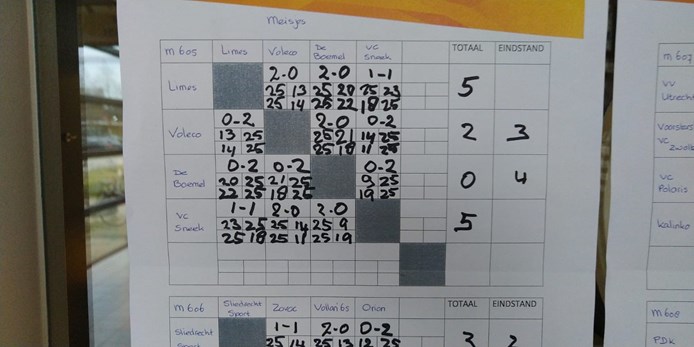 Meisjes
m605 Limes Voleco De Boemel VC Sneek TOTAAL EINDSTAND
Limes 2-0 2-0 1-1 5
25 13 25 20 25 23
25 14 25 22 18 25
Voleco 0-2 2-0 0-2 2 3
13 25 25 21 14 25
14 25 25 18 11 25
De Boemel 0-2 0-2 0-2 0 4
20 25 21 25 9 25
22 25 18 25 19 25
VC Sneek 1-1 2-0 2-0 5
23 25 25 14 25 9
25 18 25 11 25 19
m606 Sliedrecht Sport Zovoc Orion TOTAAL EINDSTAND
Sliedrecht Sport 1-1 2-0 0-2 3 2
25 14 25 13 12 25
m607
VV Utrecht
VC
VC Polaris
Kalinko
m608
PDK